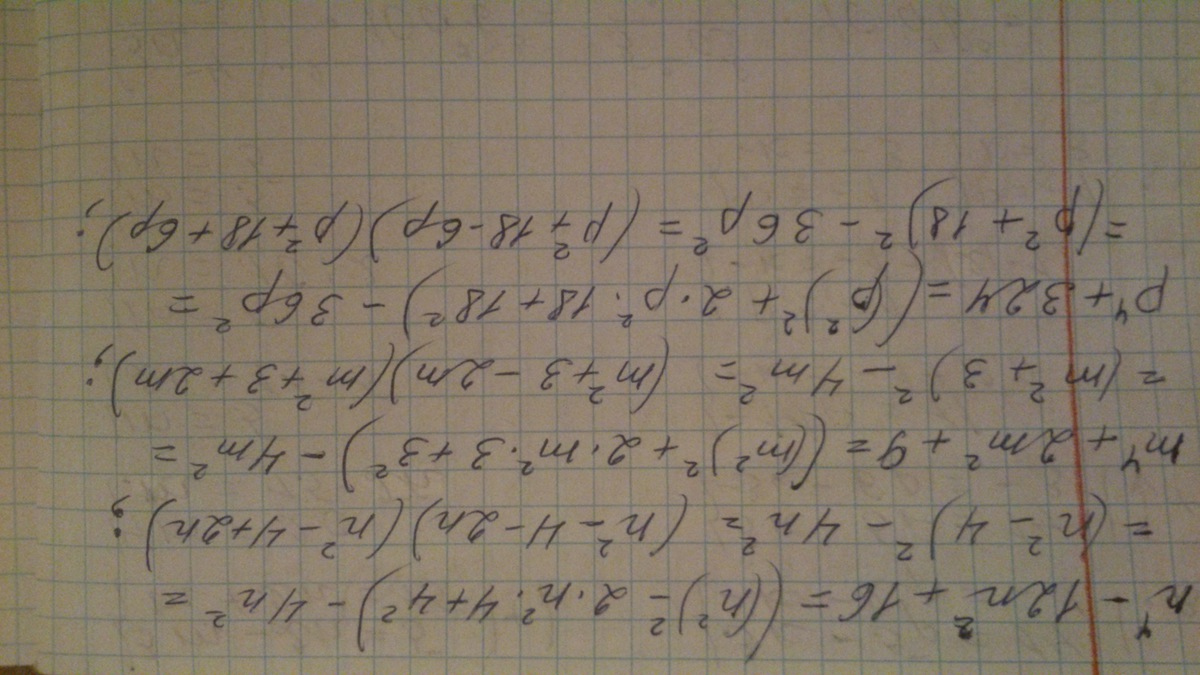 n⁴ - 12n² + 16 = ((n²)² - 2·n²·4 + 4²) - 4n² =
= (n² - 4)² - 4n² = (n² - 4 - 2n)(n² - 4 + 2n);
m⁴ + 2m² + 9 = ((m²)² + 2·m²·3 + 3²) - 4m² =
= (m² + 3)² - 4m² = (m² + 3 - 2m)(m² + 3 + 2m);
p⁴ + 324 = ((p²)² + 2·p²·18 + 18²) - 36p² =
= (p² + 18)² - 36p² = (p² + 18 - 6p)(p² + 18 + 6p);